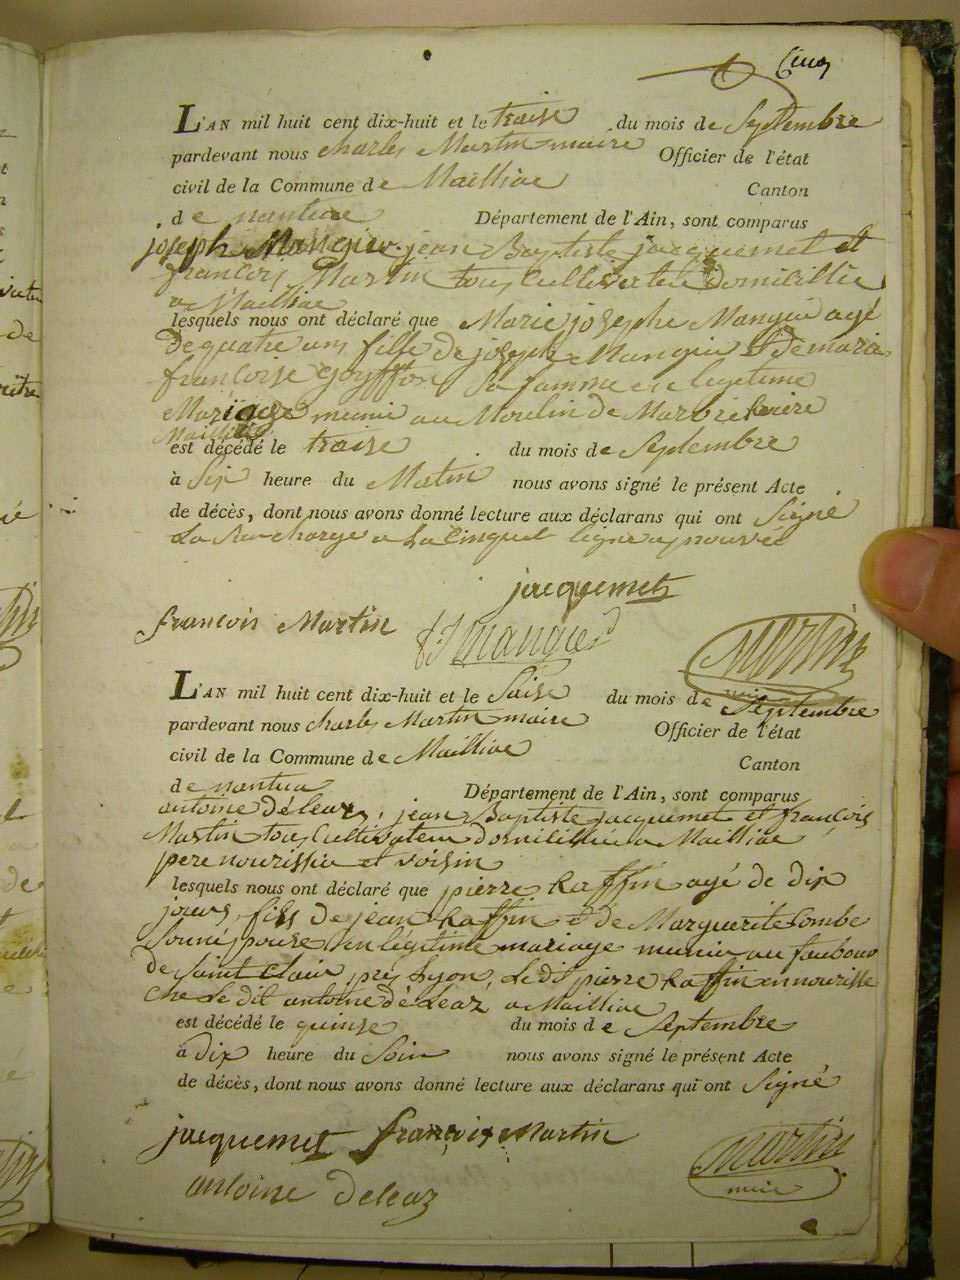 Cinq
L'AN mil huit cent dix-huit et le traise du mois de Septembre
pardevant nous charles Martin maire Officier de l'état
civil de la Commune de Mailliae Canton
de nantua Département de l'Ain, sont comparus
joseph Manguin jean Baptiste jacquemet et
francois Martin tous Cultivateu domicillié
a Mailliae
lesquels nous ont déclaré que Marie josephe Manguin agé
de quatre ans fille de joseph Manguin & de marie
francoise goyffon Sa famme en legitime
Mariage au Moulin de Marbre
Mailliae
est décédé le traise du mois de Septembre
à Six heure du Matin nous avons signé le présent Acte
de décès, dont nous avons donné lecture aux déclarans qui ont Signé
La Surcharge a La Cinquet ligne approuvée
jacquemet
francois Martin manguin Martin
maire
L'AN mil huit cent dix-huit et le Saise du mois de Septembre
pardevant nous charles Martin maire Officier de l'état
civil de la Commune de Mailliae Canton
de nantua Département de l'Ain, sont comparus
antoine déleaz, jean Baptiste jacquemet et francois
Martin tous Cultivateu domicillié a Mailliae
pere nourissié et voisin
lesquels nous ont déclaré que pierre Raffin agé de dix
jours, fils de jean Raffin & de Marguerite Combe
Son épouse en legitime mariage au faubour
de Saint Clair près Lyon, Le dit pierre Raffin en nourisse
che Le dit antoine déleaz a Mailliae
est décédé le quinse du mois de Septembre
à Dix heure du Soir nous avons signé le présent Acte
de décès, dont nous avons donné lecture aux déclarans qui ont Signé
jacquemet francois Martin Martin
antoine deleaz maire